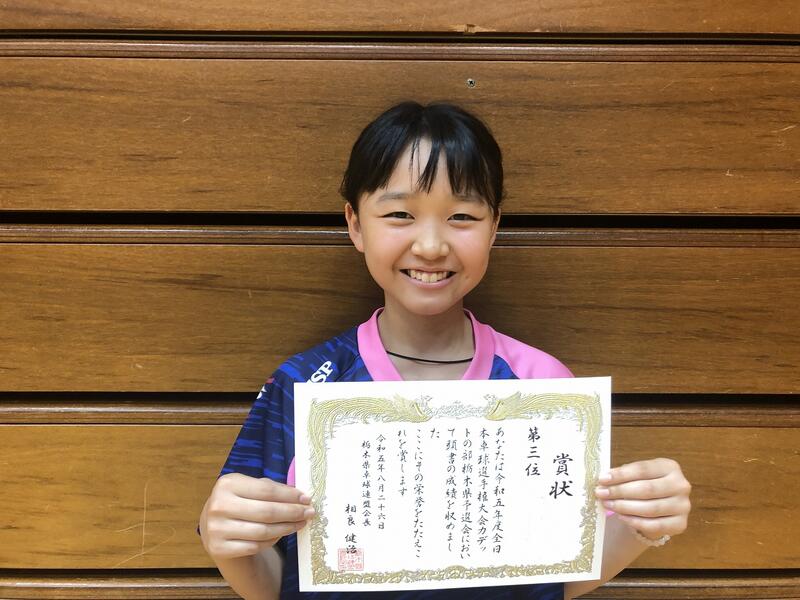 賞状
第三位
あなたは令和五年度全日
本卓球選手権大会カデッ
トの部栃木県予選会におい
て頭書の成績を収めまし
た
ここにその栄誉をたたえこ
れを賞します
令和五年八月二十六日
栃木県卓球連盟会長
相良 健治
SP